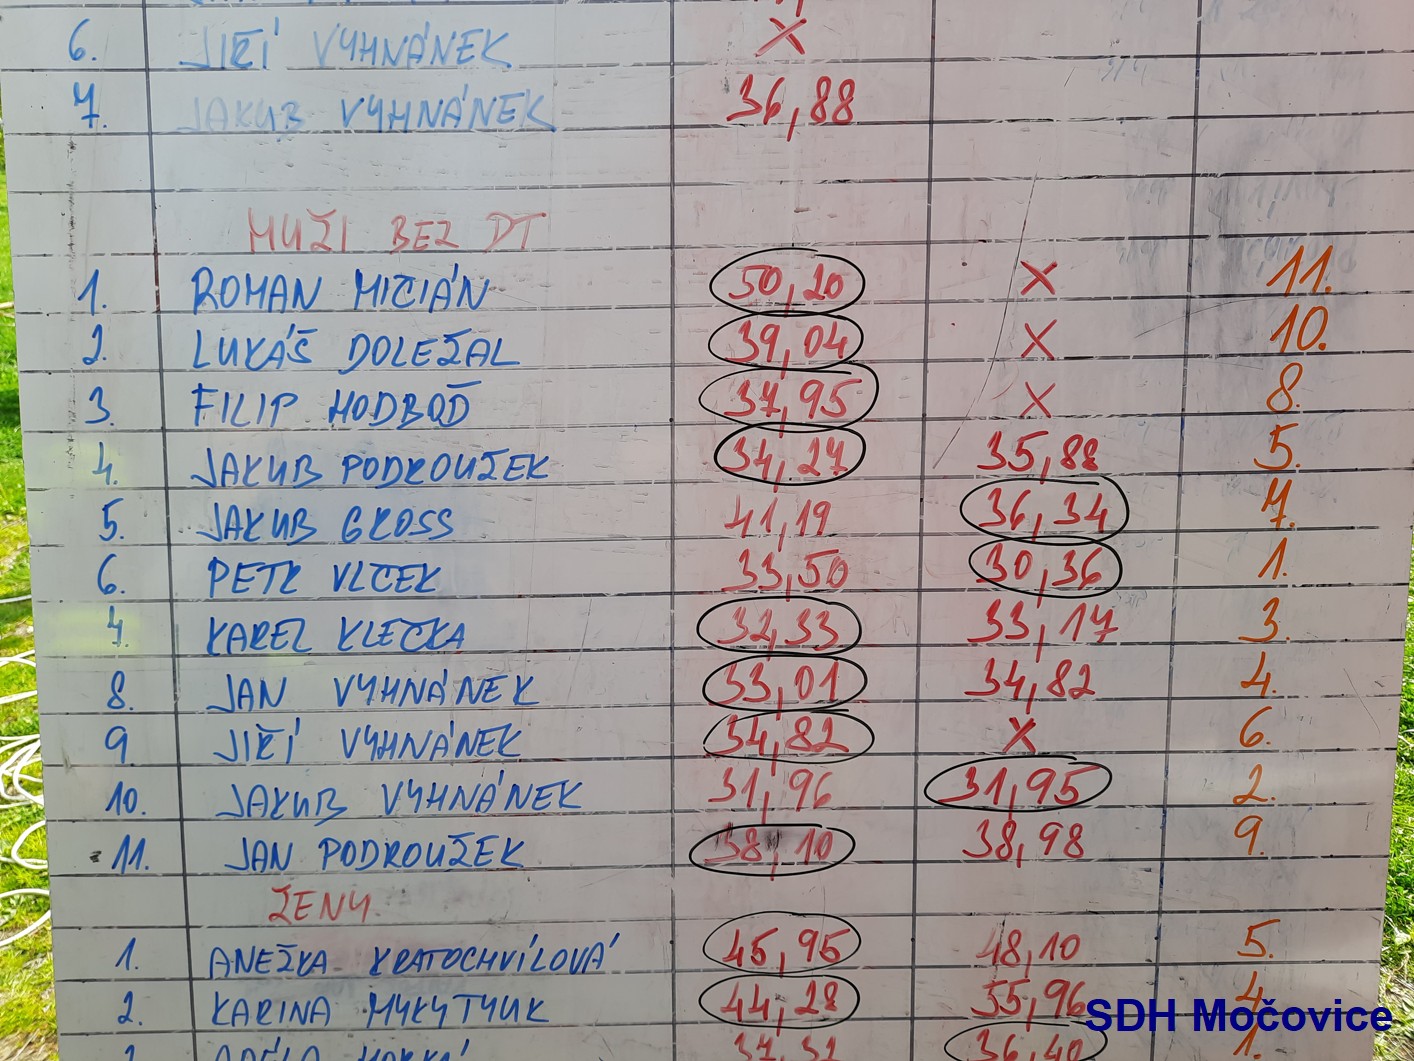 6. JIŘÍ VYHNÁNEK X
7. JAKUB VYHNÁNEK 36,88
MUŽI BEZ DT
1. ROMAN MICIÁN 50,20 X 11.
2. LUKÁŠ DOLEŽAL 39,04 X 10.
3. FILIP HODBOĎ 37,95 X 8.
4. JAKUB PODROUŽEK 34,27 35,88 5.
5. JAKUB GROSS 41,19 36,34 7.
6. PETR VLČEK 33,50 30,36 1.
7. KAREL KLEČKA 32,33 33,17 3.
8. JAN VYHNÁNEK 33,01 34,82 4.
9 JIŘÍ VYHNÁNEK 34,82 X 6.
10. JAKUB VYHNÁNEK 31,96 31,95 2.
11. JAN PODROUŽEK 38,10 38,98 9.
ŽENY
1. ANEŽKA KRATOCHVÍLOVÁ 45,95 48,10 5.
2. KARINA MYKYTYUK 44,28 55,96 4.
36,40 1.
SDH Močovice